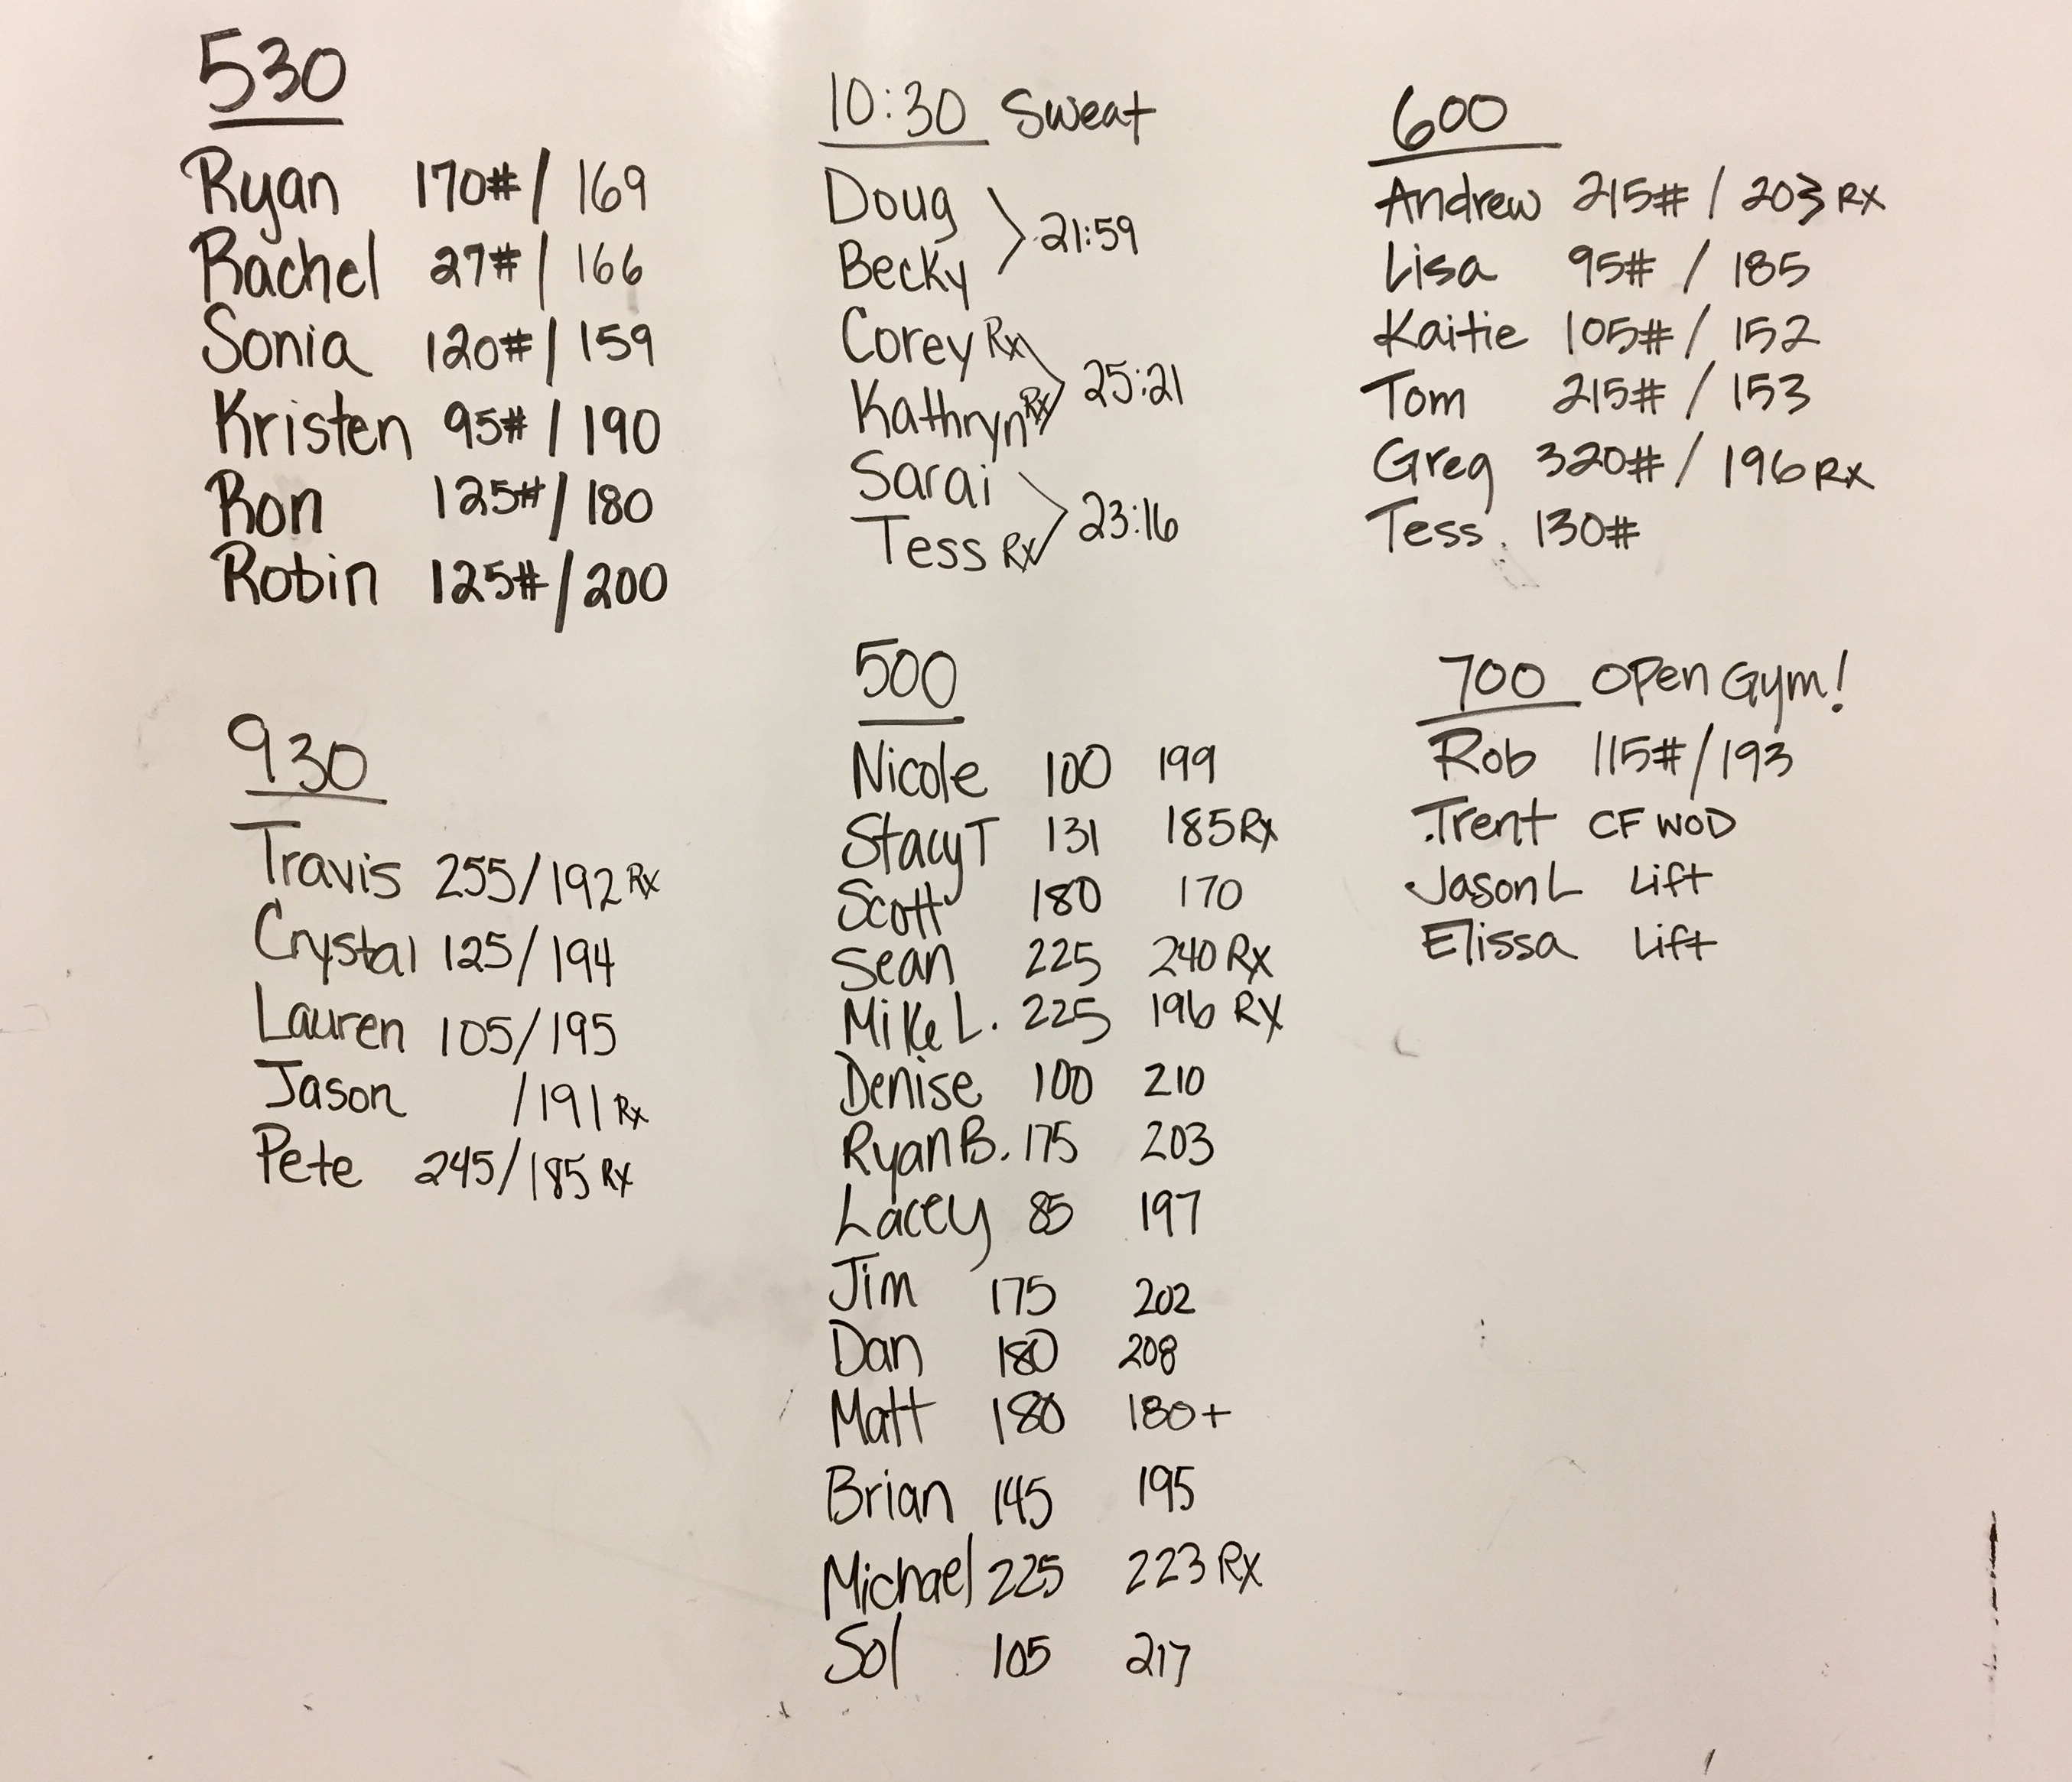 530
Ryan 170#/ 169
Rachel 27#/ 166
Sonia 120#/ 159
Kristen 95#/ 190
Ron 125#/ 180
Robin 125#/ 200
930
Travis 255/192 Rx
Crystal 125/194
Lauren 105/195
Jason /191 Rx
Pete 245/185 Rx
10:30 Sweat
Doug
21:59
Becky
Corey Rx
25:21
Kathryn Rx
Sarai
23:16
Tess Rx
500
Nicole 100 199
Stacy T 131 185 Rx
Scott 180 170
Sean 225 240 Rx
Mike L. 225 196 RX
Denise 100 210
Ryan B. 175 203
Lacey 85 197
Jim 175 202
Dan 180 208
Matt 180 180+
Brian 145 195
Michael 225 223 Rx
Sol 105 217
600
Andrew 215# / 203 RX
Lisa 95# / 185
Kaitie 105# / 152
Tom 215# / 153
Greg 320# / 196 RX
Tess 130#
700 Open Gym!
Rob 115#/193
Trent CF WOD
Jason L Lift
Elissa Lift